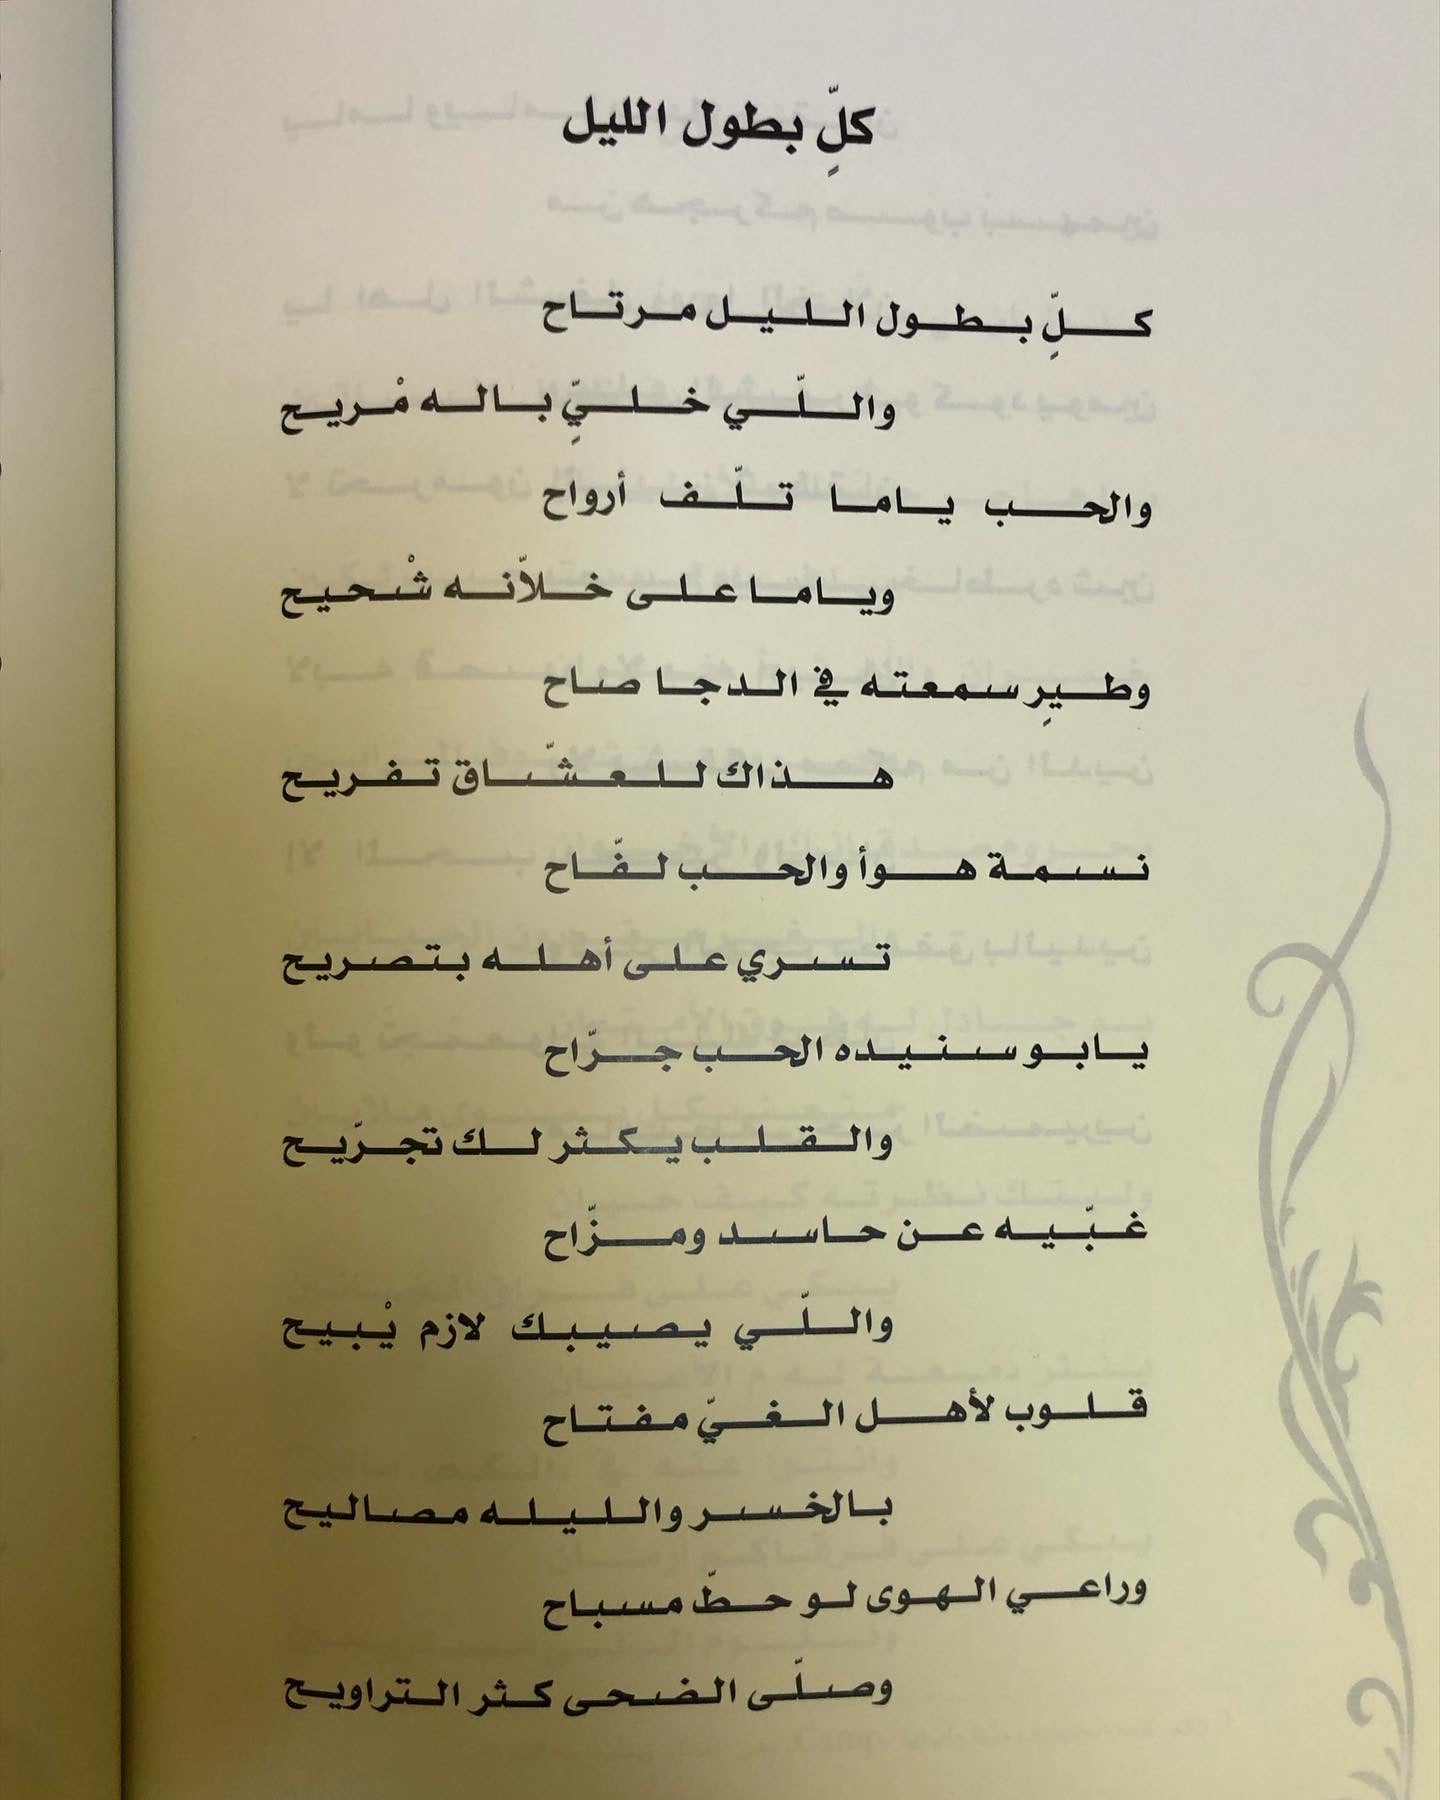 كلٍّ بطول الليل
كلٍّ بطول الليل مرتاح
واللّي خليٍّ باله مْريح
والحب ياما تلّف أرواح
وياما على خلاّنه شْحيح
وطيرٍ سمعته في الدجا صاح
هذاك للعشّاق تفريح
نسمة هوأ والحب لفّاح
تسري على أهله بتصريح
يابو سنيده الحب جرّاح
والقلب يكثر لك تجرّيح
غبّيه عن حاسد ومزّاح
واللّي يصيبك لازم يْبيح
قلوب لأهل الغيّ مفتاح
بالخسر والليله مصاليح
وراعي الهوى لو حطّ مسباح
وصلّى الضحى كثر التراويح